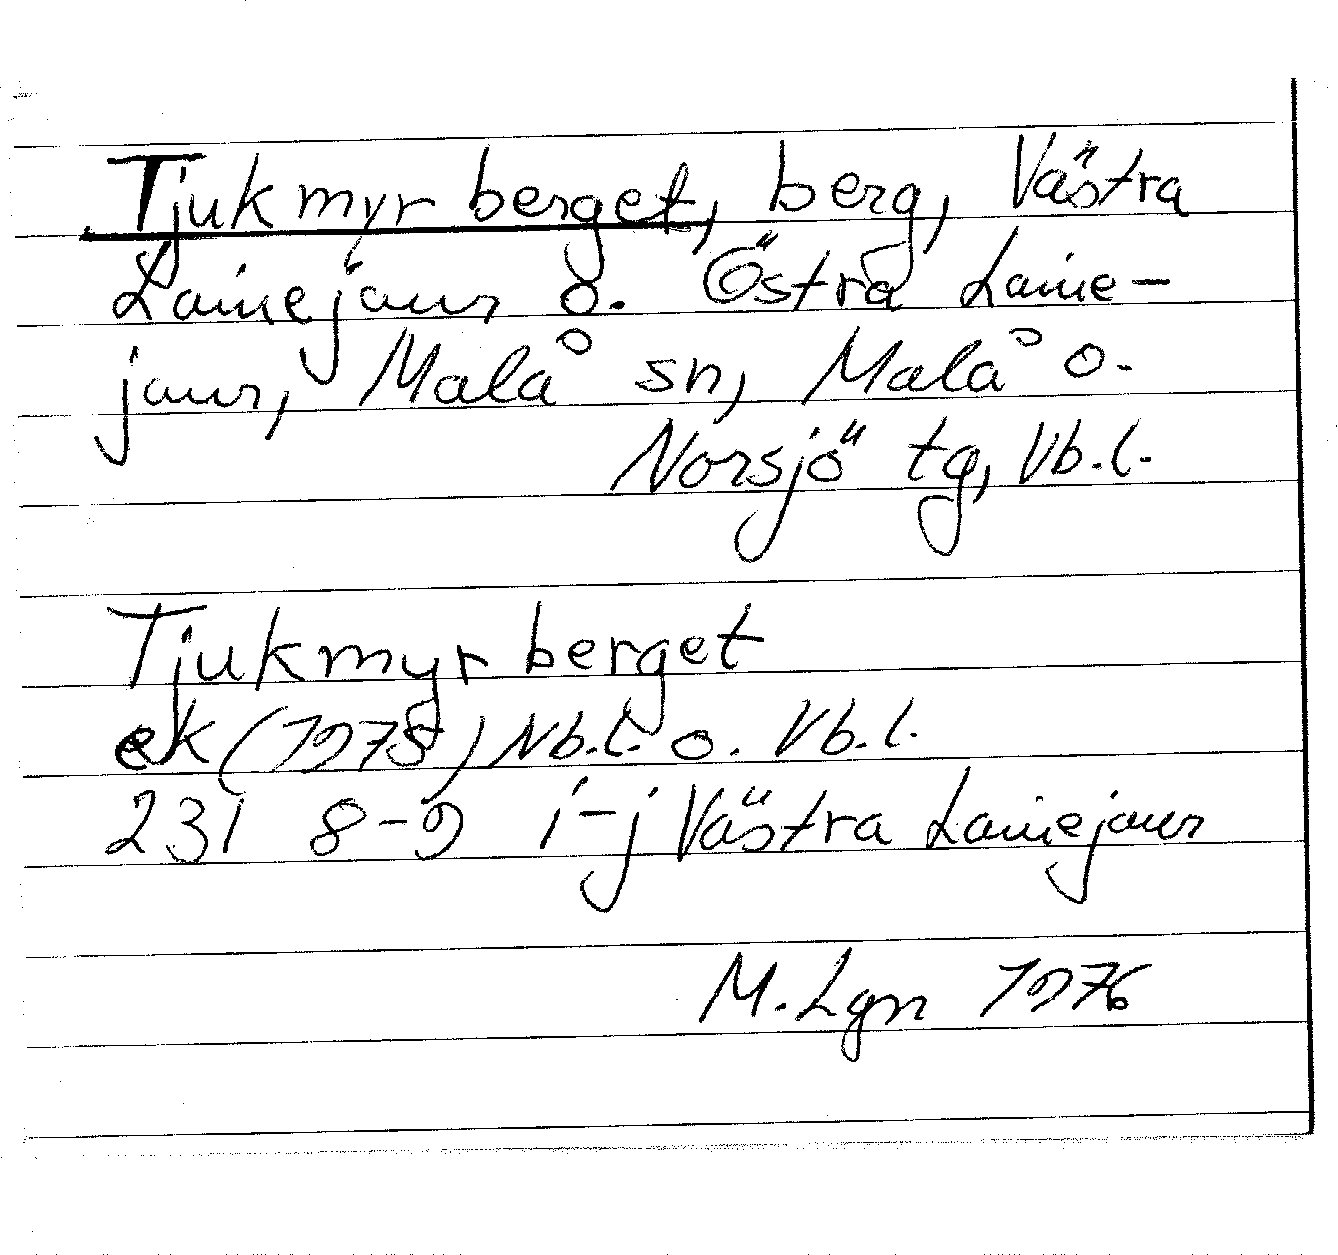 Tjukmyrberget, berg, Västra
Lainejaur o. Östra Laine-
jaur, Malå sn, Malå o.
Norsjö tg, Vb.l.
Tjukmyrberget
ek (1975) Nb.l. o. Vb.l.
231 8-9 i-j Västra Lainejaur
M. Lgn 1976